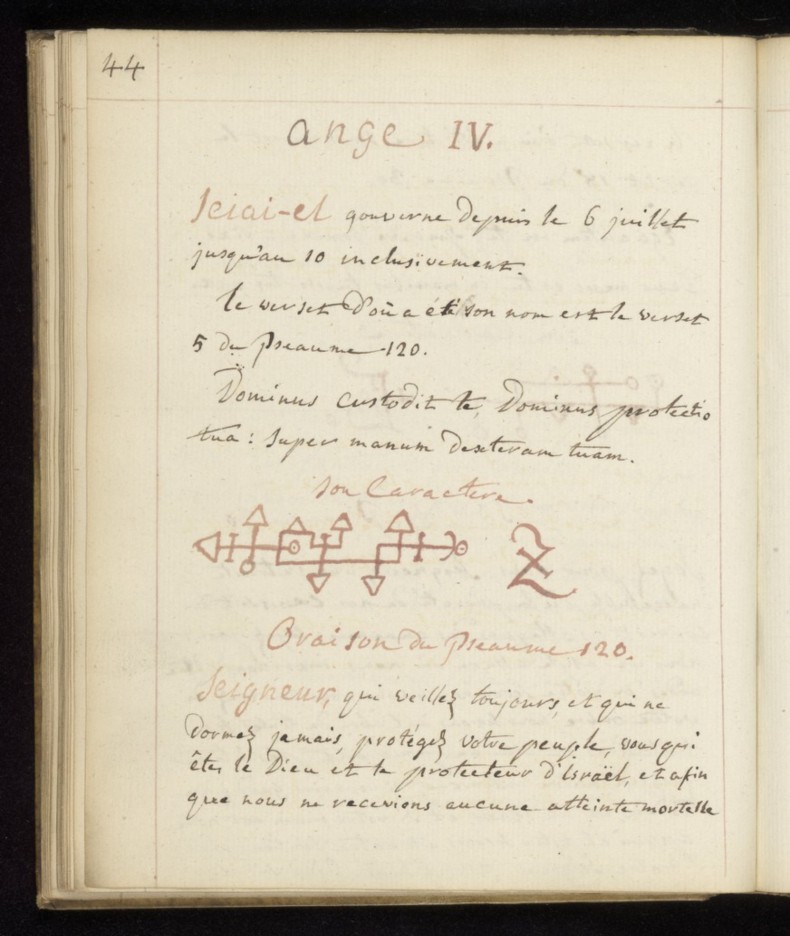 44
ange IV.
Ieiai-el gouverne depuis le 6 juillet
jusqu'au 10 inclusivement.
le verset d'où a été son nom est le verset
5 du Pseaume 120.
Dominus custodit te, Dominus protectio
tua : super manum dexteram tuam.
son Caractere.
Oraison du Pseaume 120.
Seigneur, qui veillez toujours, et qui ne
dormez jamais, protégez votre peuple, vous qui
êtes le Dieu et le protecteur d'Israël, et afin
que nous ne recevions aucune atteinte mortelle